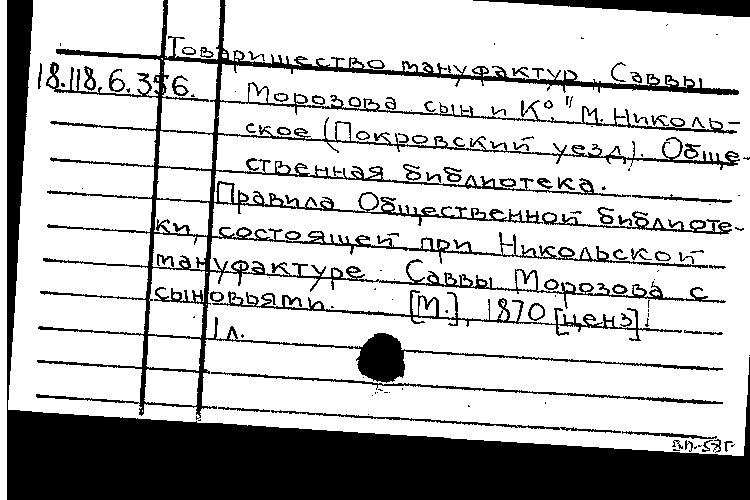 Товарищество мануфактур „Саввы
18.118.6.356. Морозова сын и К°." М. Николь-
ское (Покровский уезд). Обще-
ственная библиотека.
Правила Общественной библиоте-
ки, состоящей при Никольской
мануфактуре Саввы Морозова с
сыновьями. [М.], 1870 [ценз].
1 л.